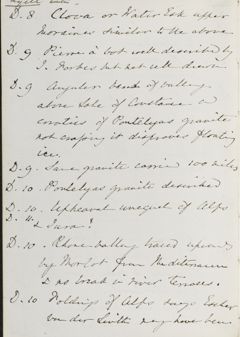 D. 8 Clova or Water Esk upper
moraines similar to the above
D. 9 Pierre à bot well described by
J. Forbes but not well drawn
D. 9 Angular bend of valley
above Lake of Constance
of Pontelyas granite
not crossing it disproves floating
ice.
D. 9. Same granite carried 100 miles
D. 10. Pontelyas granite described
D. 10. Upheaval unequal of Alps
D. 11. & Jura?
D. 10. Rhone valley traced upwards
by Morlot from Mediterranean
& no break in river terraces.
D. 10 Foldings of Alps says Escher
von der Linth may have been